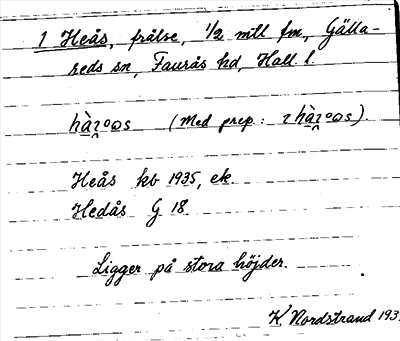 1 Heås, frälse, 1/2 mtl fm, Gälla-
reds sn, Faurås hd, Hall. l.
(Med prep.:
Heås kb 1935, ek.
Hedås G 18.
Ligger på stora höjder.
K Nordstrand 193